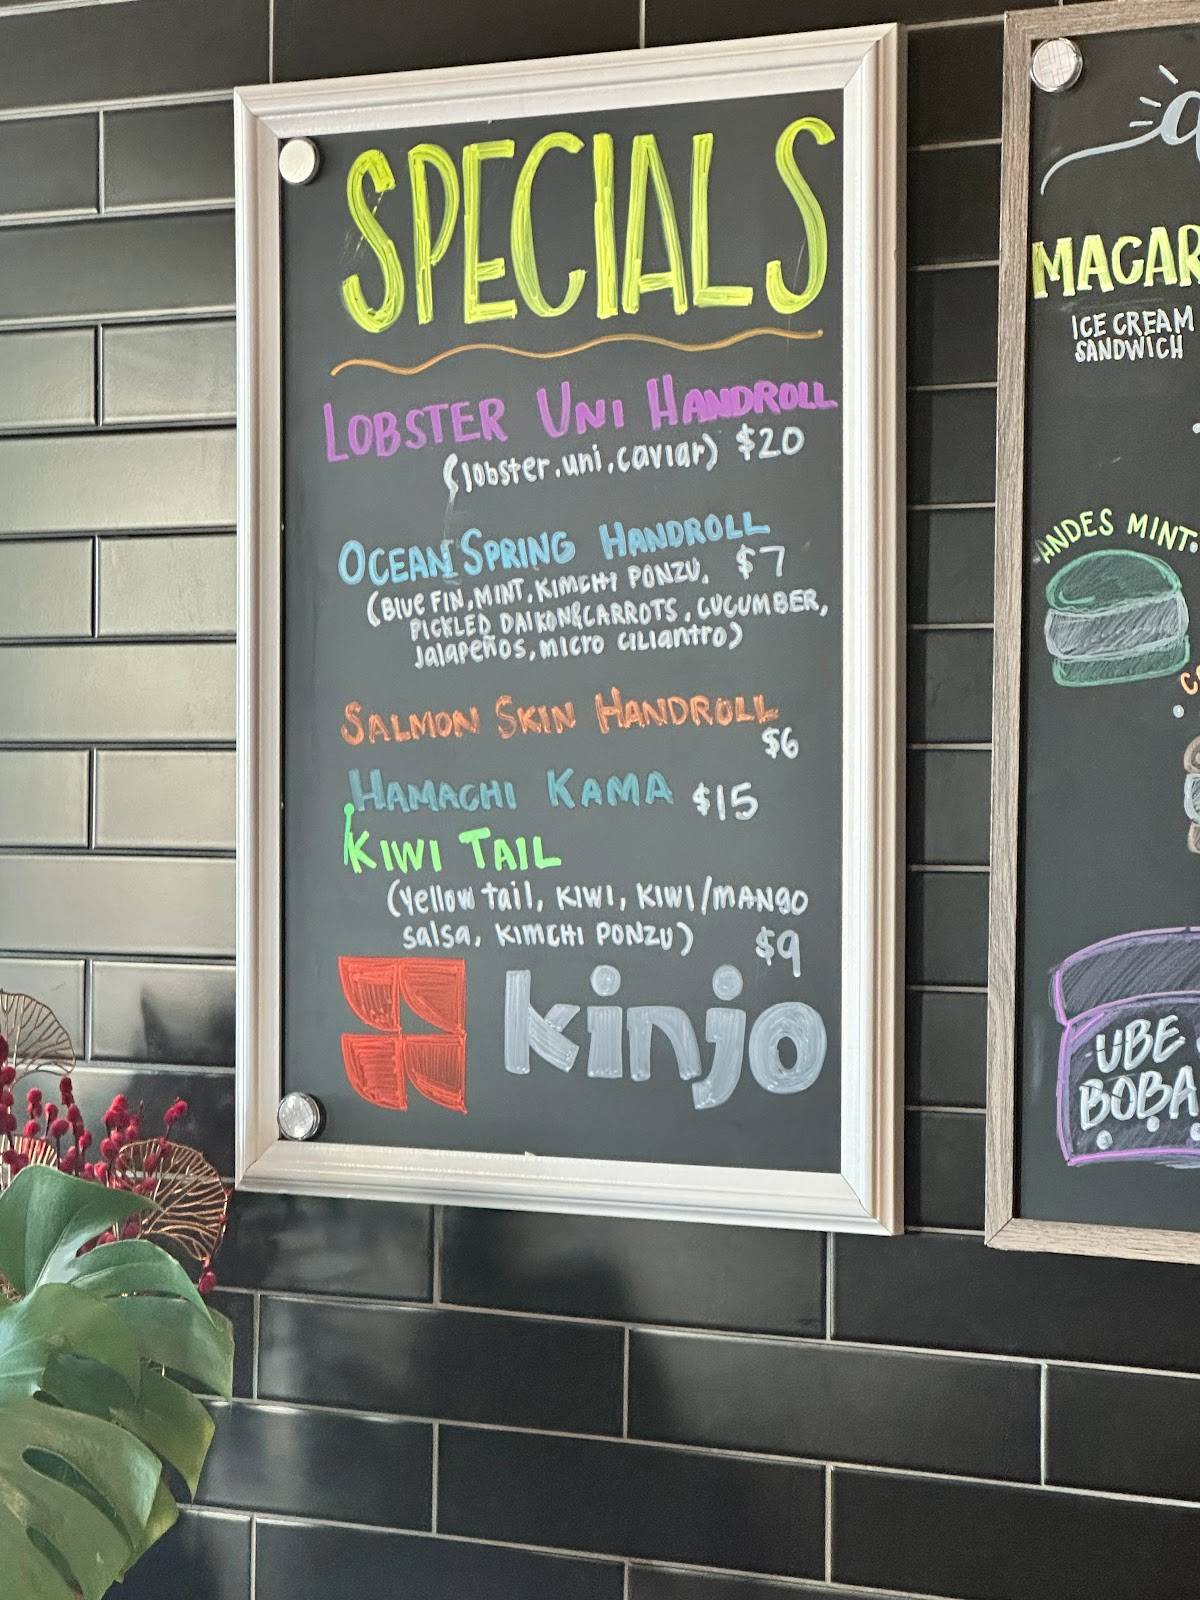 SPECIALS
LOBSTER UNI HANDROLL
(lobster, uni, caviar) $20
OCEAN SPRING HANDROLL
(BLUE FIN, MINT, KIMCHI PONZU, $7
PICKLED DAIKON & CARROTS, CUCUMBER,
Jalapeños, micro ciliantro)
SALMON SKIN HANDROLL
$6
HAMACHI KAMA $15
KIWI TAIL
(Yellow tail, KIWI, KIWI/MANgo
salsa, KIMCHI PONZU) $9
kinjo
MACAR
ICE CREAM
SANDWICH
ANDES MINT
UBE
BOBA